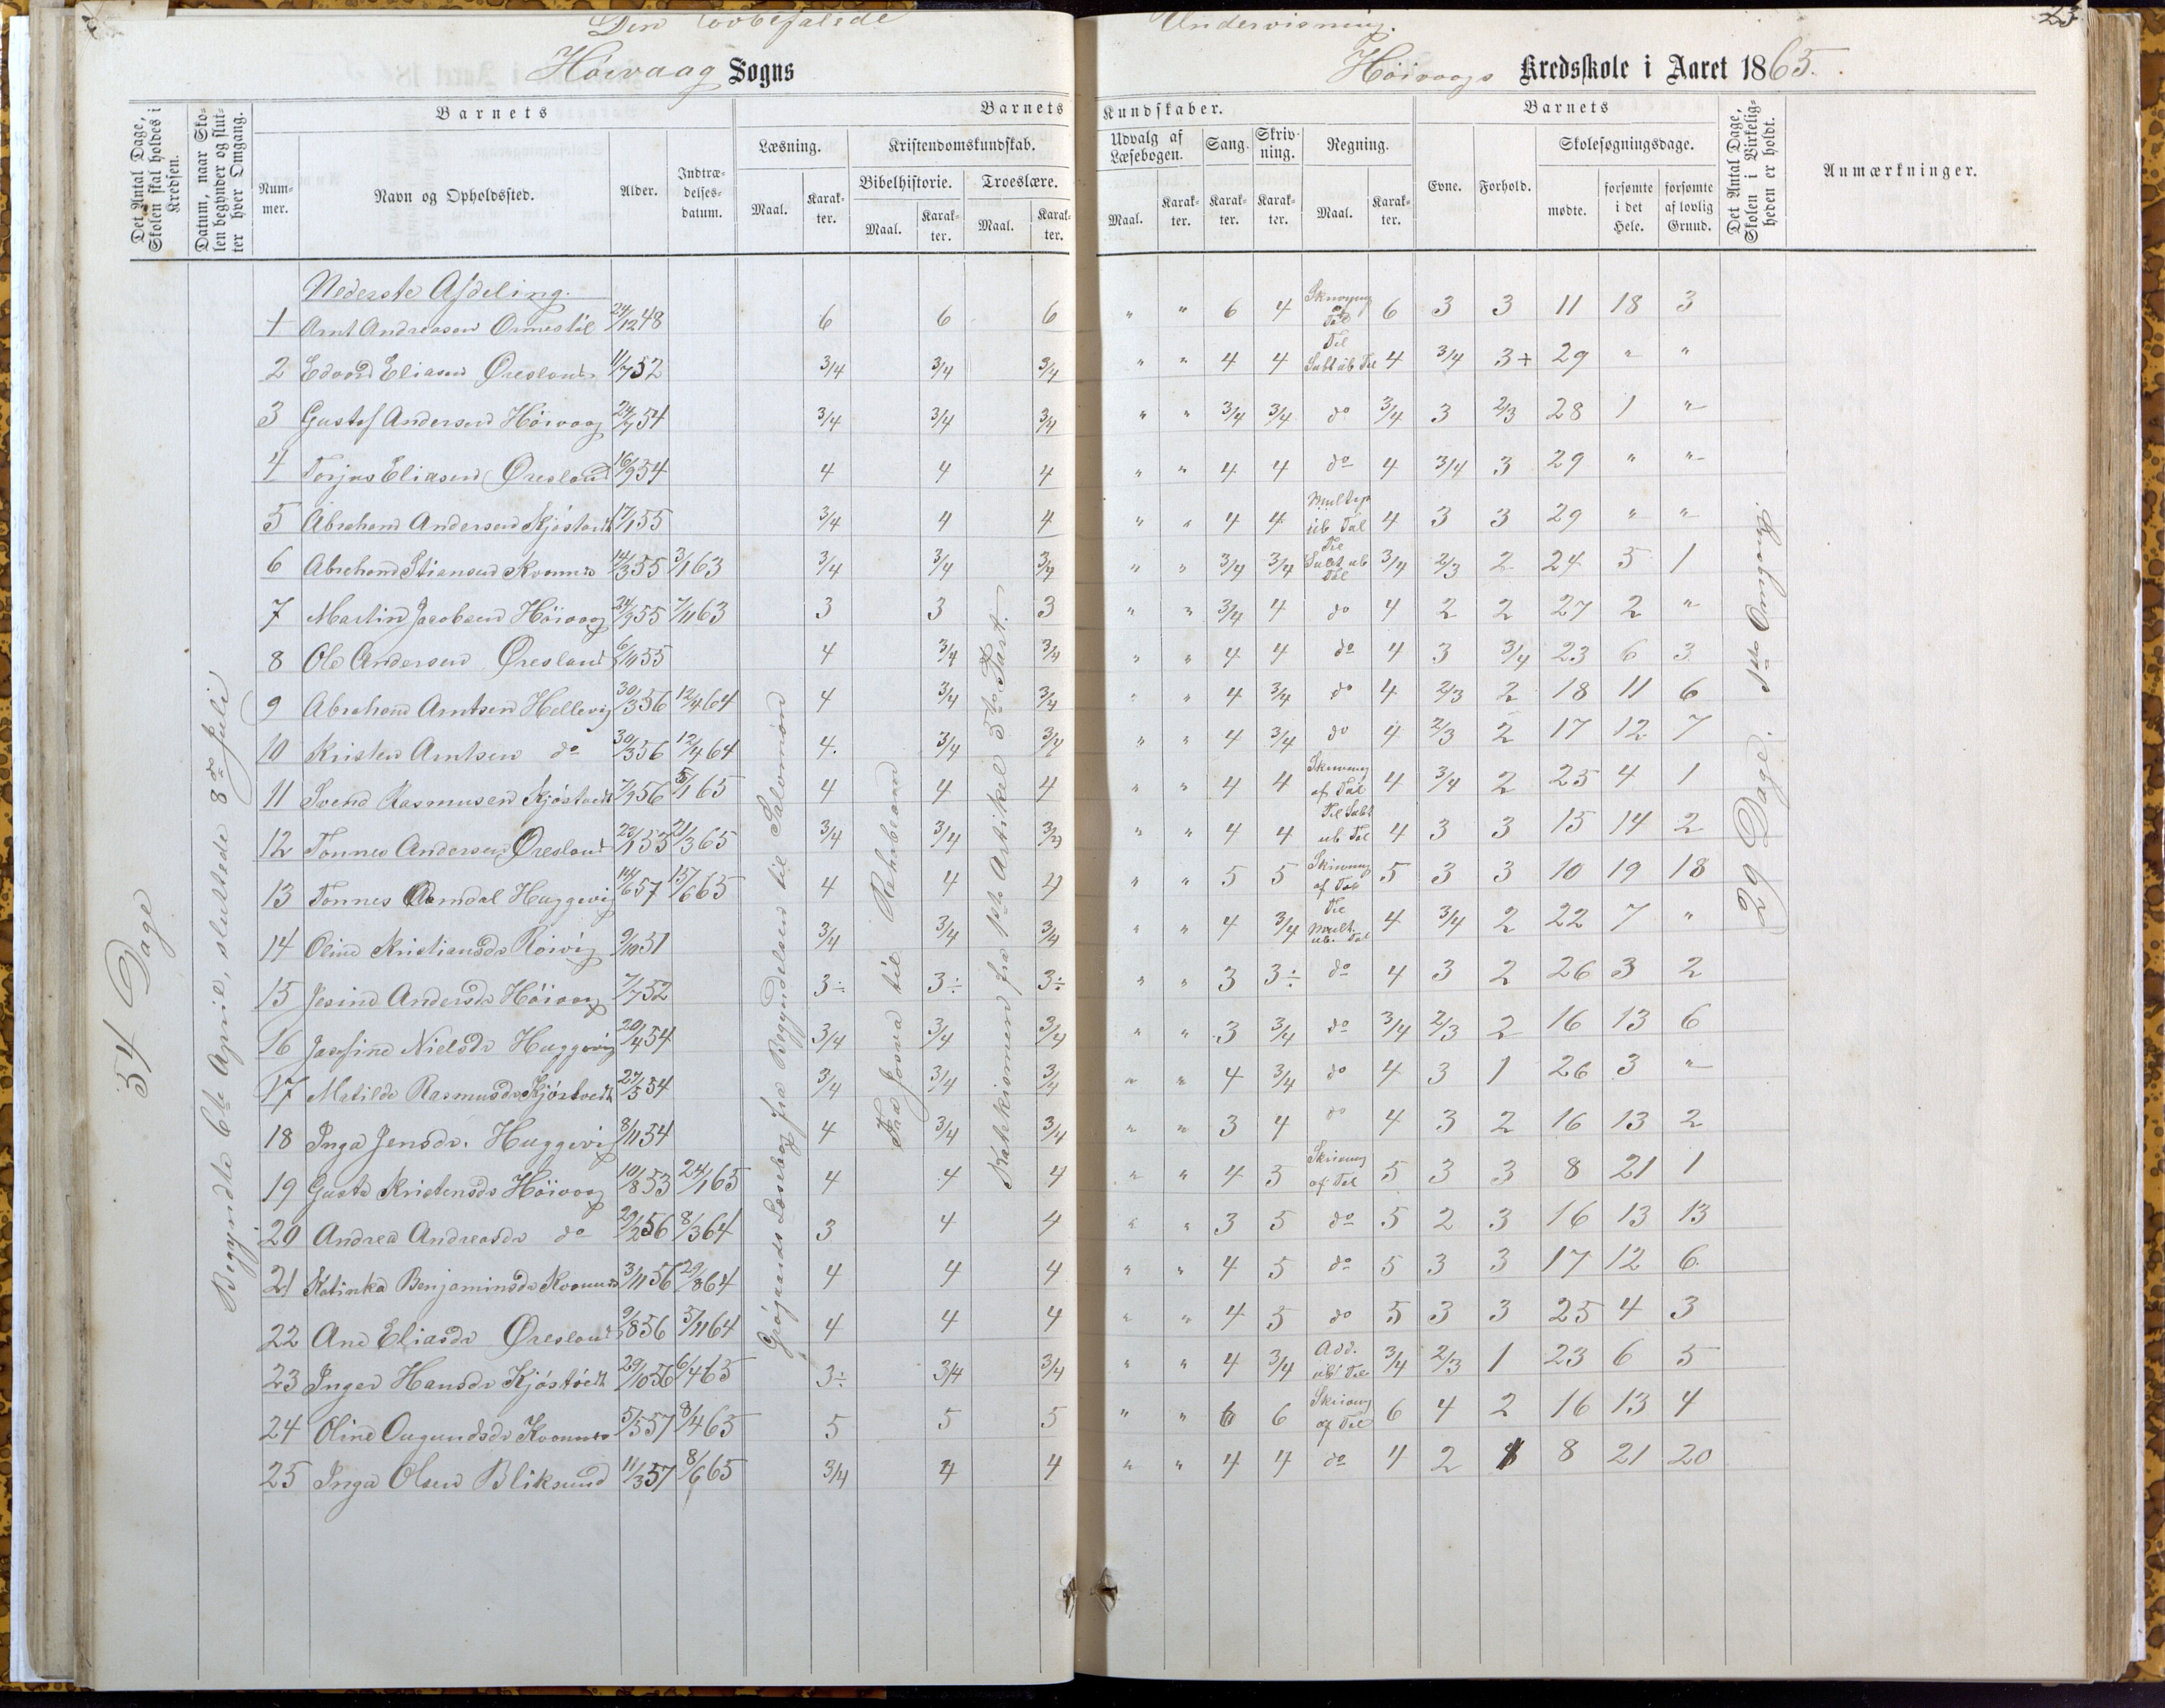 Den lovbefalede Undervisning. 23
Høivaag Sogns Høivaags Kredsskole i Aaret 1865.
Det Antal Dage, Skolen skal holdes i Kredsen. | Datum, naar Skolen begynder og slutter hver Omgang. | Barnets | Barnets Kundskaber. | Barnets | Det Antal Dage, Skolen i Virkeligheden er holdt. | Anmærkninger.
Nummer. | Navn og Opholdssted. | Alder. | Indtrædelsesdatum. | Læsning. | Kristendomskundskab. | Udvalg af Læsebogen. | Sang. | Skrivning. | Regning. | Evne. | Forhold. | Skolesøgningsdage.
Bibelhistorie. | Troeslære.
Maal. | Karakter. | Maal. | Karakter. | Maal. | Karakter. | Maal. | Karakter. | Karakter. | Karakter. | Maal. | Karakter. | mødte. | forsømte i det Hele. | forsømte af lovlig Grund.
54 Dage
Begyndte 6te April, sluttede 8de Juli
Læsebog fra Begyndelsen til Salomon
Fra Josva til Rehabeam
Katekismen fra 1ste Artikel 5te Part.
29 Dage. 1ste Omgang.
Nederste Afdeling.
1 Arnt Andreasen Ormestöl 24/12 48 6 6 6 " " 6 4 Skrivning af Tal 6 3 3 11 18 3
2 Edvard Eliasen Øresland 11/7 52 3/4 3/4 3/4 " " 4 4 Til Subt ub Tal 4 3/4 3+ 29 " "
3 Gustaf Andersen Höivaag 24/9 54 3/4 3/4 3/4 " " 3/4 3/4 do 3/4 3 2/3 28 1 "
4 Torjus Eliasen Øresland 16/9 54 4 4 4 " " 4 4 do 4 3/4 3 29 " "
5 Abraham Andersen Kjöstvedt 17/1 55 3/4 4 4 " " 4 4 Multip ub Tal 4 3 3 29 " "
6 Abraham Stiansen Kvannes 14/3 55 3/1 63 3/4 3/4 3/4 " " 3/4 3/4 Til Subt ub Tal 3/4 2/3 2 24 5 1
7 Martin Jacobsen Höivaag 24/9 55 7/11 63 3 3 3 " " 3/4 4 do 4 2 2 27 2 "
8 Ole Andersen Øresland 6/11 55 4 3/4 3/4 " " 4 4 do 4 3 3/4 23 6 3
9 Abraham Arntsen Hellevig 30/3 56 12/4 64 4 3/4 3/4 " " 4 3/4 do 4 2/3 2 18 11 6
10 Kristen Arntsen do 30/3 56 12/4 64 4. 3/4 3/4 " " 4 3/4 do 4 2/3 2 17 12 7
11 Svend Rasmusen Kjöstvedt 7/9 56 5/1 65 4 4 4 " " 4 4 Skrivning af Tal 4 3/4 2 25 4 1
12 Tönnes Andersen Øresland 23/1 55 21/3 65 3/4 3/4 3/4 " " 4 4 Til Subt ub Tal 4 3 3 15 14 2
13 Tönnes Aamdal Huggevig 14/6 57 15/6 65 4 4 4 " " 5 5 Skrivning af Tal 5 3 3 10 19 18
14 Oline Kristiansdr Röivig 9/10 51 3/4 3/4 3/4 " " 4 3/4 Til Mult. ub. Tal 4 3/4 2 22 7 "
15 Jesine Andersdr Höivaag 7/7 52 3÷ 3÷ 3÷ " " 3 3÷ do 4 3 2 26 3 2
16 Josefine Nielsdr Huggevig 20/4 54 3/4 3/4 3/4 " " 3 3/4 do 3/4 2/3 2 16 13 6
17 Matilde Rasmusdr Kjöstvedt 27/5 54 3/4 3/4 3/4 " " 4 3/4 do 4 3 1 26 3 "
18 Inga Jensdr. Huggevig 8/11 54 4 3/4 3/4 " " 3 4 do 4 3 2 16 13 2
19 Gusta Kristensdr Höivaag 10/8 53 24/1 65 4 4 4 " " 4 5 Skrivning af Tal 5 3 3 8 21 1
20 Andrea Andreasdr do 29/2 56 8/3 64 3 4 4 " " 3 5 do 5 2 3 16 13 13
21 Katinka Benjaminsdr Kvannes 3/11 56 29/8 64 4 4 4 " " 4 5 do 5 3 3 17 12 6
22 Ane Eliasdr Øresland 9/8 56 5/11 64 4 4 4 " " 4 5 do 5 3 3 25 4 3
23 Inger Hansdr Kjöstvedt 29/10 56 6/4 65 3÷ 3/4 3/4 " " 4 3/4 Add. ub Tal 3/4 2/3 1 23 6 5
24 Oline Ougundsdr Kvannes 5/5 57 8/4 65 5 5 5 " " 6 6 Skrivning af Tal 6 4 2 16 13 4
25 Inga Olsen Bliksund 11/3 57 8/6 65 3/4 4 4 " " 4 4 do 4 2 8 21 20